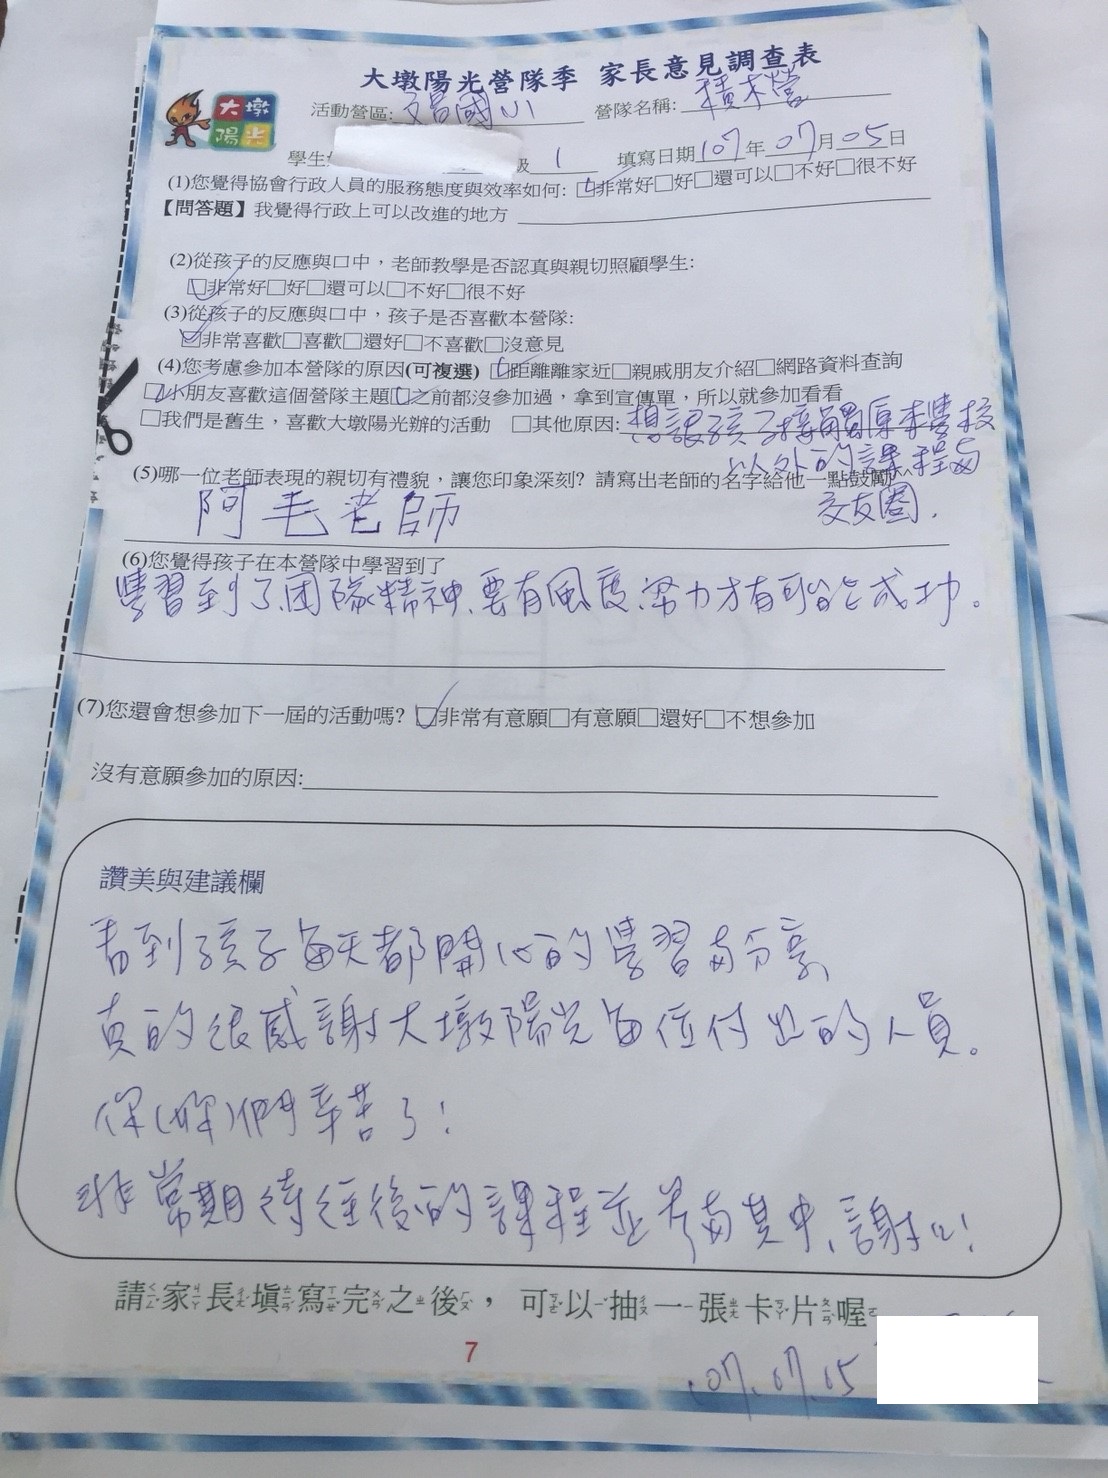 大墩陽光營隊季 家長意見調查表
大墩
陽光
活動營區: 文昌國小 營隊名稱: 積木營
學生 級 1 填寫日期 107 年 07 月 05 日
(1)您覺得協會行政人員的服務態度與效率如何: ☑非常好□好□還可以□不好□很不好
【問答題】我覺得行政上可以改進的地方
(2)從孩子的反應與口中，老師教學是否認真與親切照顧學生:
☑非常好□好□還可以□不好□很不好
(3)從孩子的反應與口中，孩子是否喜歡本營隊:
☑非常喜歡□喜歡□還好□不喜歡□沒意見
(4)您考慮參加本營隊的原因(可複選) ☑距離離家近□親戚朋友介紹□網路資料查詢
☑小朋友喜歡這個營隊主題☑之前都沒參加過，拿到宣傳單，所以就參加看看
□我們是舊生，喜歡大墩陽光辦的活動 □其他原因: 想讓孩子接觸原本學校
以外的課程與
交友圈.
(5)哪一位老師表現的親切有禮貌，讓您印象深刻? 請寫出老師的名字給他一點鼓勵^^
阿毛老師
(6)您覺得孩子在本營隊中學習到了
學習到了團隊精神、要有風度、努力才有可能成功。
(7)您還會想參加下一屆的活動嗎? ☑非常有意願□有意願□還好□不想參加
沒有意願參加的原因:
讚美與建議欄
看到孩子每天都開心的學習與分享,
真的很感謝大墩陽光每位付出的人員。
你(妳)們辛苦了!
非常期待往後的課程並參與其中、謝謝!
請家長填寫完之後，可以抽一張卡片喔
7
107.07.05